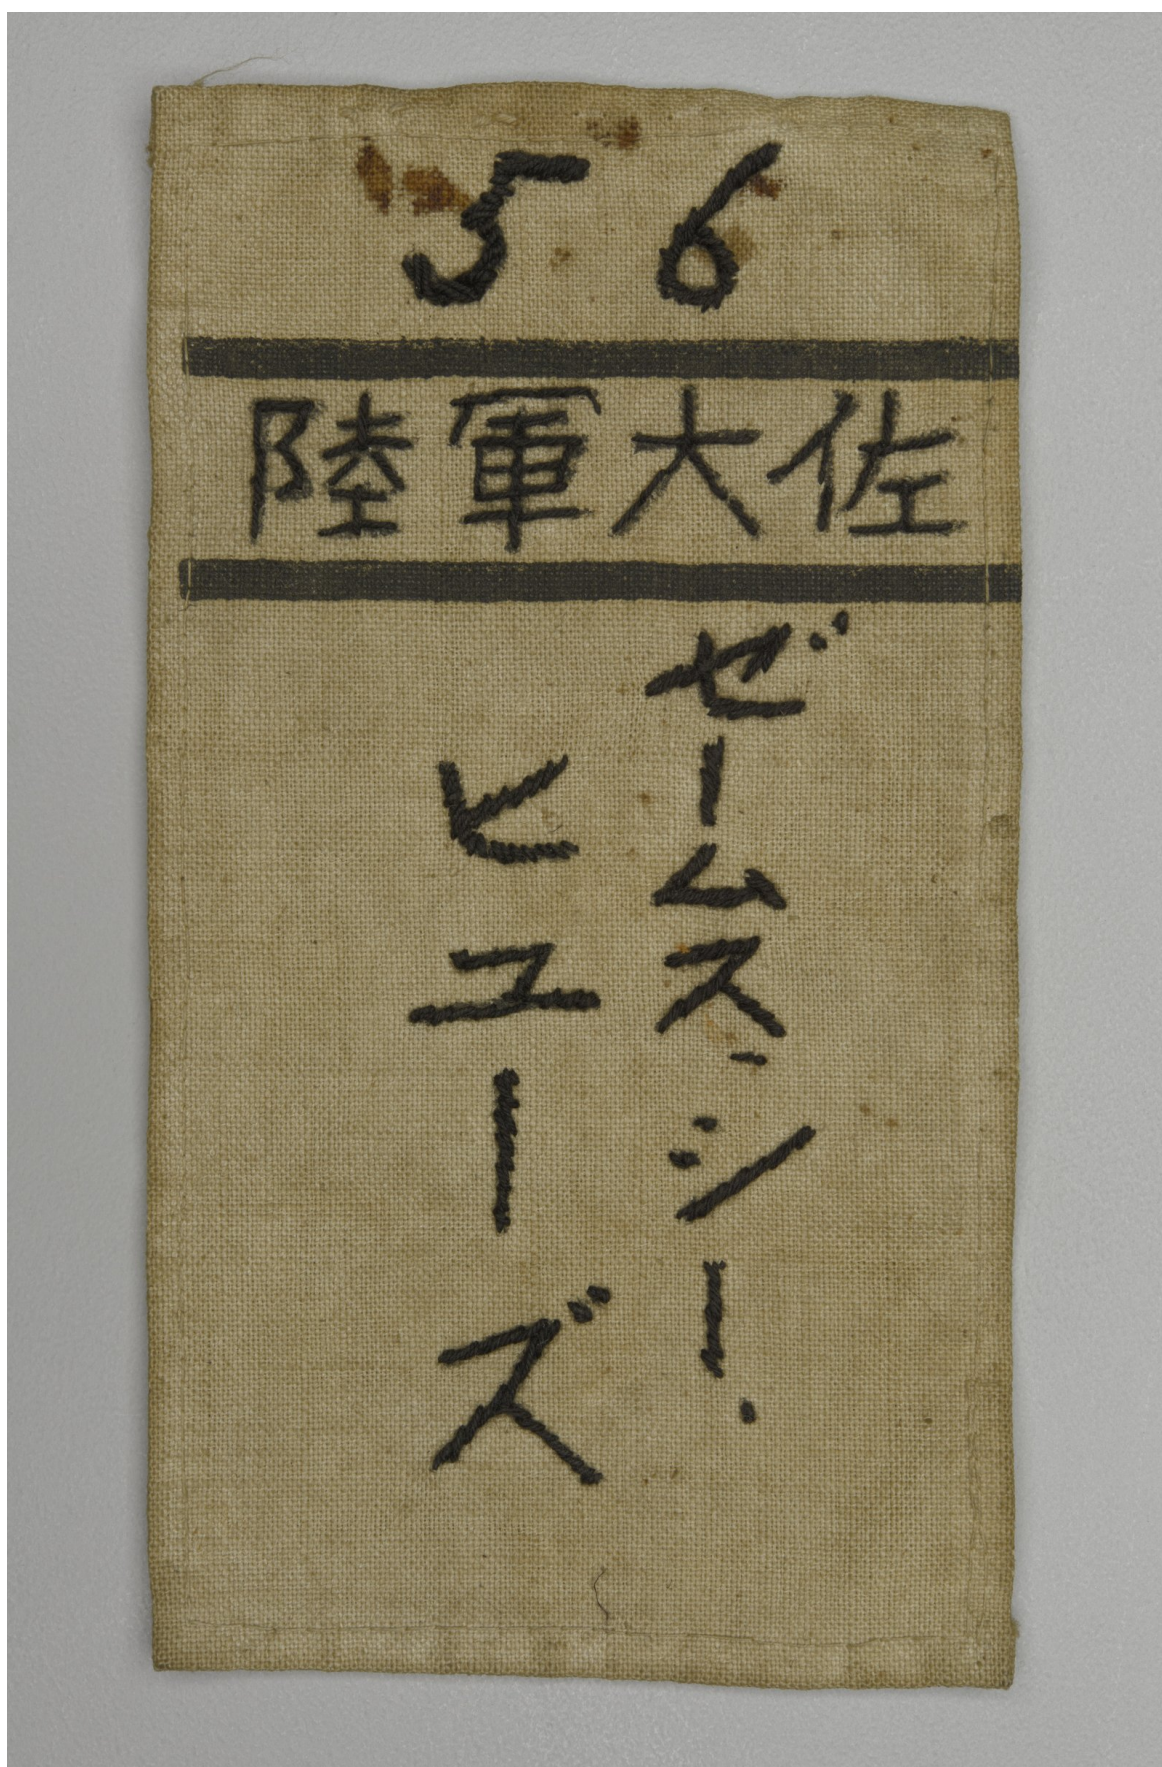 56
陸軍大佐
ゼームス・シー・
ヒユーズ